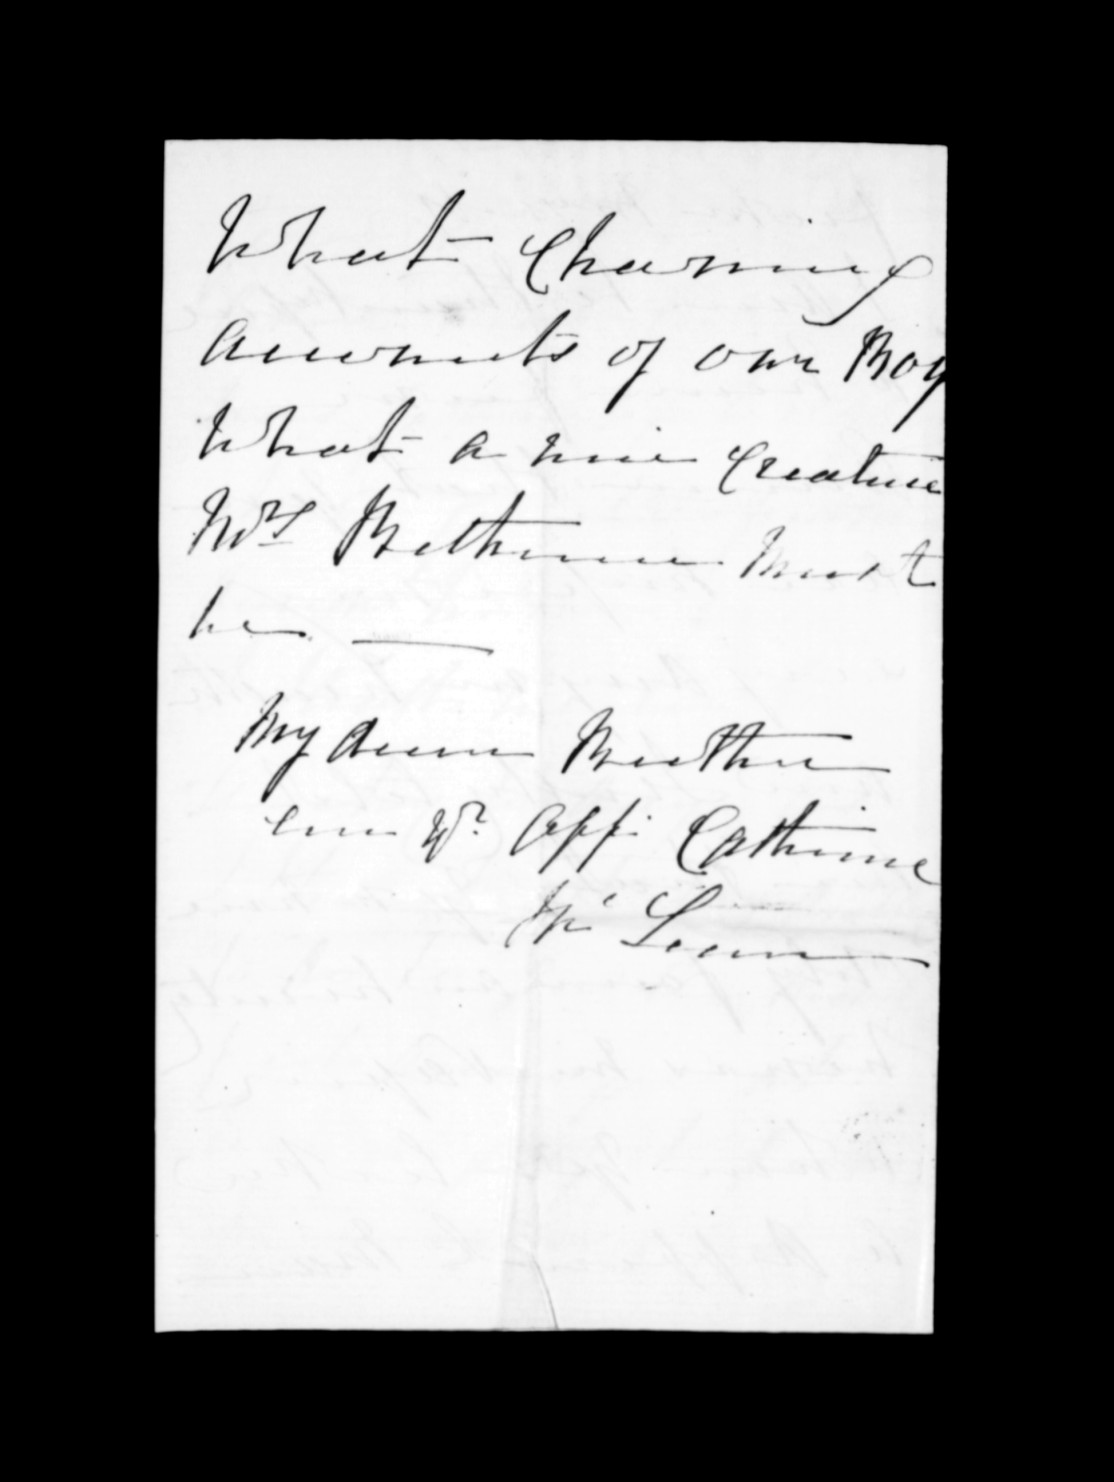 What Charming
accounts of our Boy
What a nice Creature
Mrs Bethune Must
be —
My dear Brother
Ever Yr. Aff. Catherine
Mc Lean